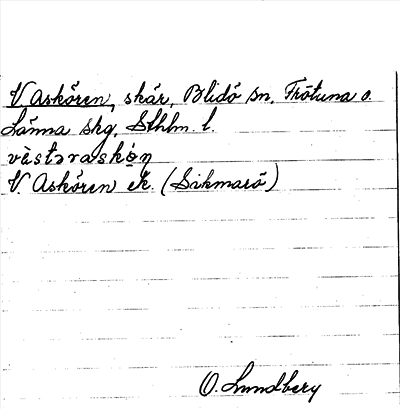 V. Askören, skär, Blidö sn, Frötuna o.
Länna skg, Sthlm. l.
vàstəraskö̀ņ
V. Askören ek. (Sikmarö)
O. Lundberg